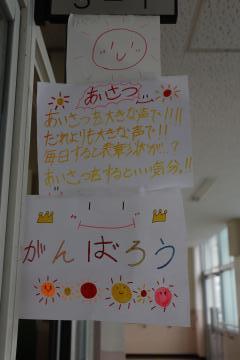 3-1
あいさつ
あいさつを大きな声で!!!!
だれよりも大きな声で!!
毎日すると表彰状が…?
あいさつをするといい気分!!
がんばろう